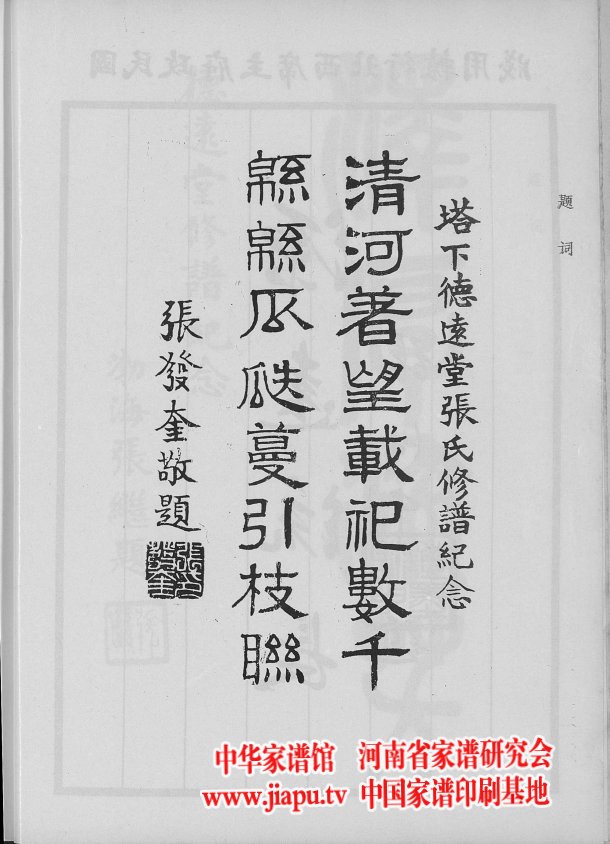 题词
塔下德远堂張氏修譜紀念
清河著望載祀數千
緜緜瓜瓞蔓引枝聯
張發奎敬題
中华家谱馆 河南省家谱研究会
www.jiapu.tv 中国家谱印刷基地